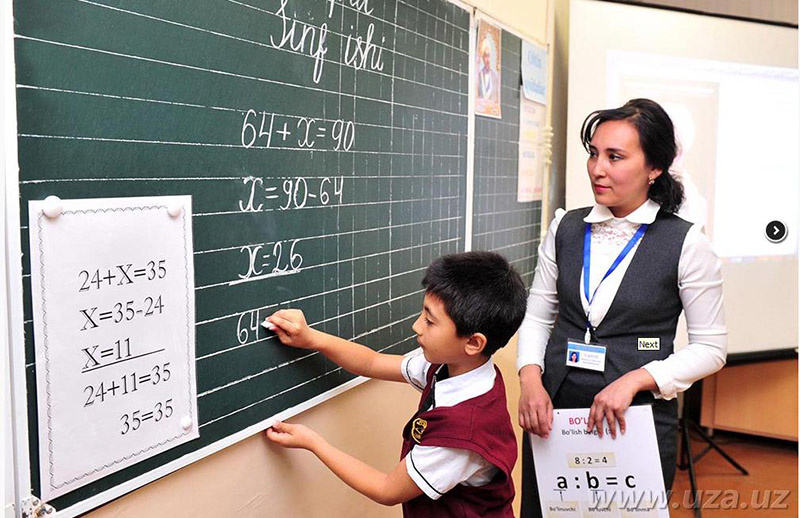 Sinf ishi
64+x=90
x=90-64
x=26
64
24+X=35
X=35-24
X=11
24+11=35
35=35
Next
BO'L
Bo'lish b
8 : 2 = 4
a : b = c
Bo'linuvchi Bo'luvchi Bo'linma
www.uza.uz